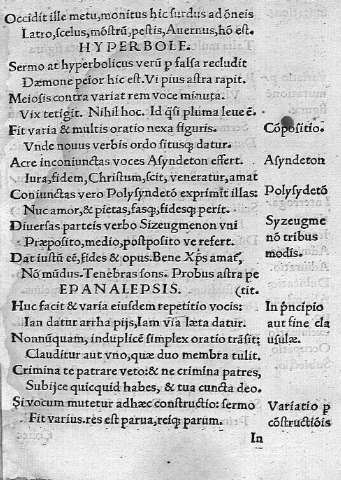 Occidit ille metu, monitus hic surdus ad õneis
Latro, scelus, mõstrũ, pestis, Auernus, hõ est.
HYPERBOLE.
Sermo at hyperbolicus verũ p falsa recludit
Dæmone peior hic est. Vi pius astra rapit.
Meiosis contra variat rem voce minuta.
Vix tetigit. Nihil hoc. Id q̃si pluma leue ẽ.
Fit varia & multis oratio nexa figuris. Cõpositio.
Vnde nouus verbis ordo situsq; datur.
Acre inconiunctas voces Asyndeton effert. Asyndeton
Iura, fidem, Christum, scit, veneratur, amat
Coniunctas vero Polysyndetõ exprimit illas: Polysydetõ
Nuc amor, & pietas, fasq;, fidesq; perit.
Diuersas parteis verbo Sizeugmenon vni Syzeugme
Præposito, medio, postposito ve refert. nõ tribus
Dat iustũ cẽ, fides & opus. Bene Xp̃s amat, modis.
Nõ mũdus. Tenebras sons. Probus astra pe
EPANALEPSIS. (tit.
Huc facit & varia eiusdem repetitio vocis: In p̃ncipio
Ian datur arrha pijs, Iam via læta datur. aut fine cla
Nonnũquam, induplicẽ simplex oratio trãsit; usulæ.
Clauditur aut vno, quæ duo membra tulit.
Crimina te patrare veto: & ne crimina patres,
Subijce quicquid habes, & tua cuncta deo.
Si vocum mutetur adhæc constructio: sermo Variatio p
Fit varius. res est parua, reiq; parum. cõstructiõis
In